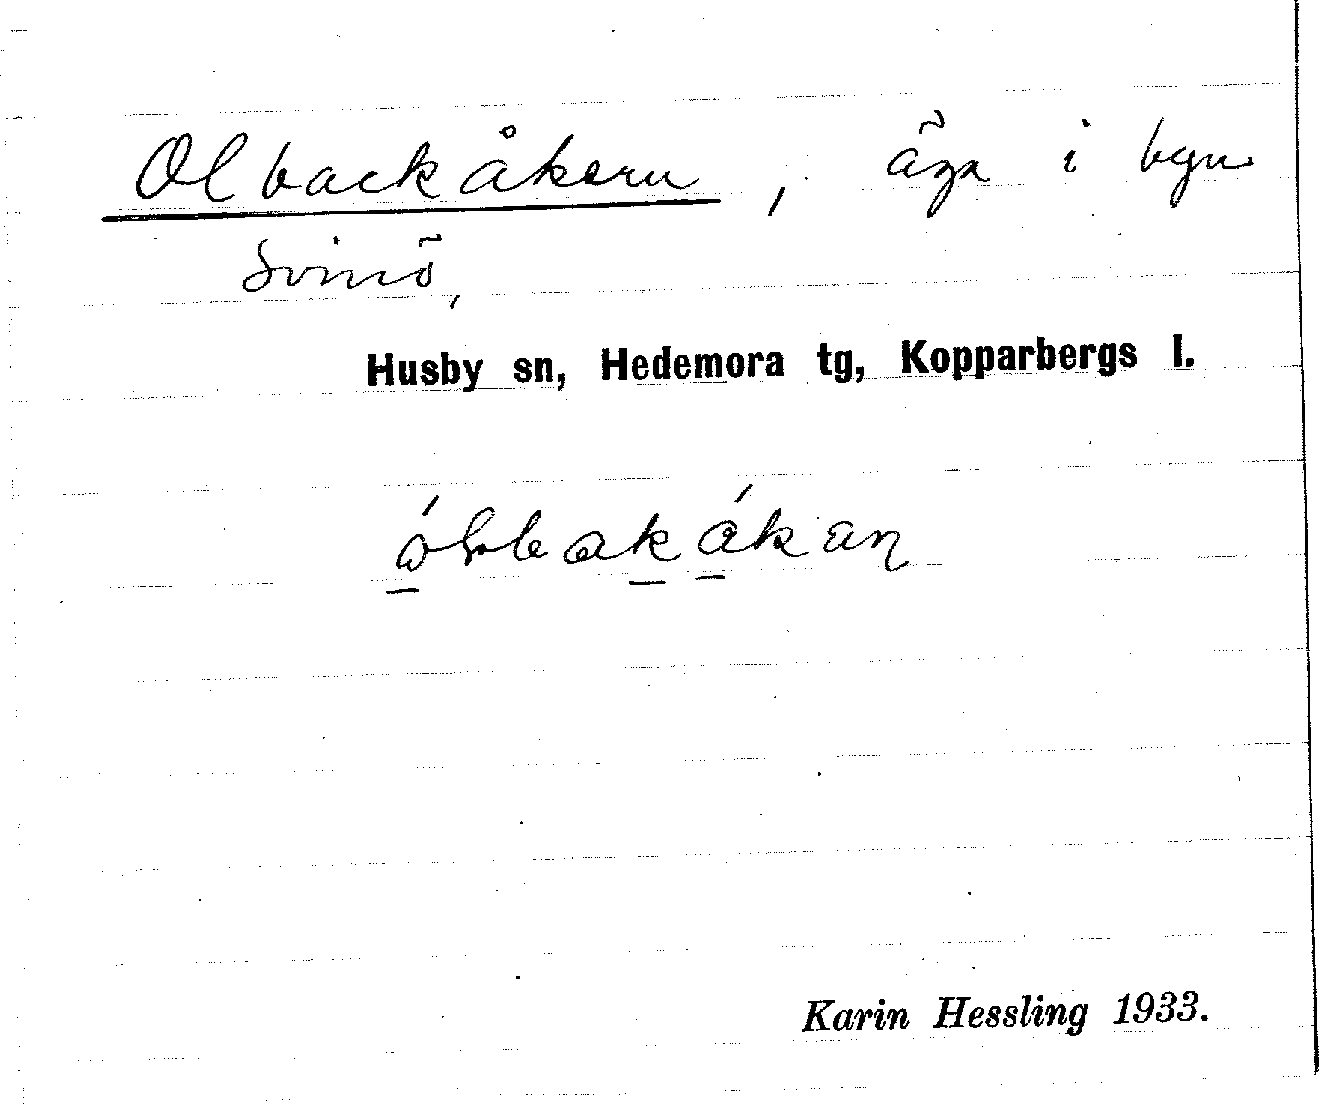 Olbackåkern, äga i byn
Svinö,
Husby sn, Hedemora tg, Kopparbergs l.
Karin Hessling 1933.